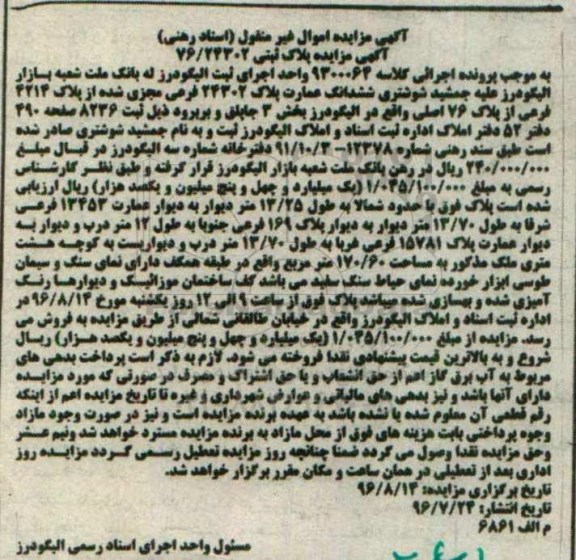 آگهی مزایده اموال غیر منقول (اسناد رهنی)
آگهی مزایده پلاک ثبتی ۷۶/۲۴۳۰۲
به موجب پرونده اجرائی کلاسه ۹۳۰۰۰۶۴ واحد اجرای ثبت الیگودرز له بانک ملت شعبه بازار
الیگودرز علیه جمشید شوشتری ششدانگ عمارت پلاک ۲۴۳۰۲ فرعی مجزی شده از پلاک ۴۲۱۴
فرعی از پلاک ۷۶ اصلی واقع در الیگودرز بخش ۳ جاپلق و بربرود ذیل ثبت ۸۲۳۶ صفحه ۴۹۰
دفتر ۵۲ دفتر املاک اداره ثبت اسناد و املاک الیگودرز ثبت و به نام جمشید شوشتری صادر شده
است طبق سند رهنی شماره ۱۲۳۷۸-۹۱/۱۰/۳ دفترخانه شماره سه الیگودرز در قبال مبلغ
۲۴۰/۰۰۰/۰۰۰ ریال در رهن بانک ملت شعبه بازار الیگودرز قرار گرفته و طبق نظر کارشناس
رسمی به مبلغ ۱/۰۴۵/۱۰۰/۰۰۰ (یک میلیارد و چهل و پنج میلیون و یکصد هزار) ریال ارزیابی
شده است پلاک فوق با حدود شمالا به طول ۱۳/۲۵ متر دیوار به دیوار عمارت ۱۳۴۵۳ فرعی
شرقا به طول ۱۳/۷۰ متر دیوار به دیوار پلاک ۱۶۹ فرعی جنوبا به طول ۱۲ متر درب و دیوار به
دیوار عمارت پلاک ۱۵۷۸۱ فرعی غربا به طول ۱۳/۷۰ متر درب و دیواریست به کوچه هشت
متری ملک مذکور به مساحت ۱۷۰/۶۰ متر مربع واقع در طبقه همکف دارای نمای سنگ و سیمان
طوسی ابزار خورده نمای حیاط سنگ سفید می باشد کف ساختمان موزائیسک و دیوارها رنگ
آمیزی شده و بهسازی شده میباشد پلاک فوق از ساعت ۹ الی ۱۲ روز یکشنبه مورخ ۹۶/۸/۱۴ در
اداره ثبت اسناد و املاک الیگودرز واقع در خیابان طالقانی شمالی از طریق مزایده به فروش می
رسد. مزایده از مبلغ ۱/۰۴۵/۱۰۰/۰۰۰ (یک میلیارد و چهل و پنج میلیون و یکصد هزار) ریال
شروع و به بالاترین قیمت پیشنهادی نقدا فروخته می شود. لازم به ذکر است پرداخت بدهی های
مربوط به آب برق گاز اعم از حق انشعاب و یا حق اشتراک و مصرف در صورتی که مورد مزایده
دارای آنها باشد و نیز بدهی های مالیاتی و عوارض شهرداری و غیره تا تاریخ مزایده اعم از اینکه
رقم قطعی آن معلوم شده یا نشده باشد به عهده برنده مزایده است و نیز در صورت وجود مازاد
وجوه پرداختی بابت هزینه های فوق از محل مازاد به برنده مزایده مسترد خواهد شد ونیم عشر
وحق مزایده نقدا وصول می گردد ضمنا چنانچه روز مزایده تعطیل رسمی گردد مزایده روز
اداری بعد از تعطیلی در همان ساعت و مکان مقرر برگزار خواهد شد.
تاریخ برگزاری مزایده: ۹۶/۸/۱۴
تاریخ انتشار: ۹۶/۷/۲۴
م الف ۶۸۶۱
مسئول واحد اجرای اسناد رسمی الیگودرز